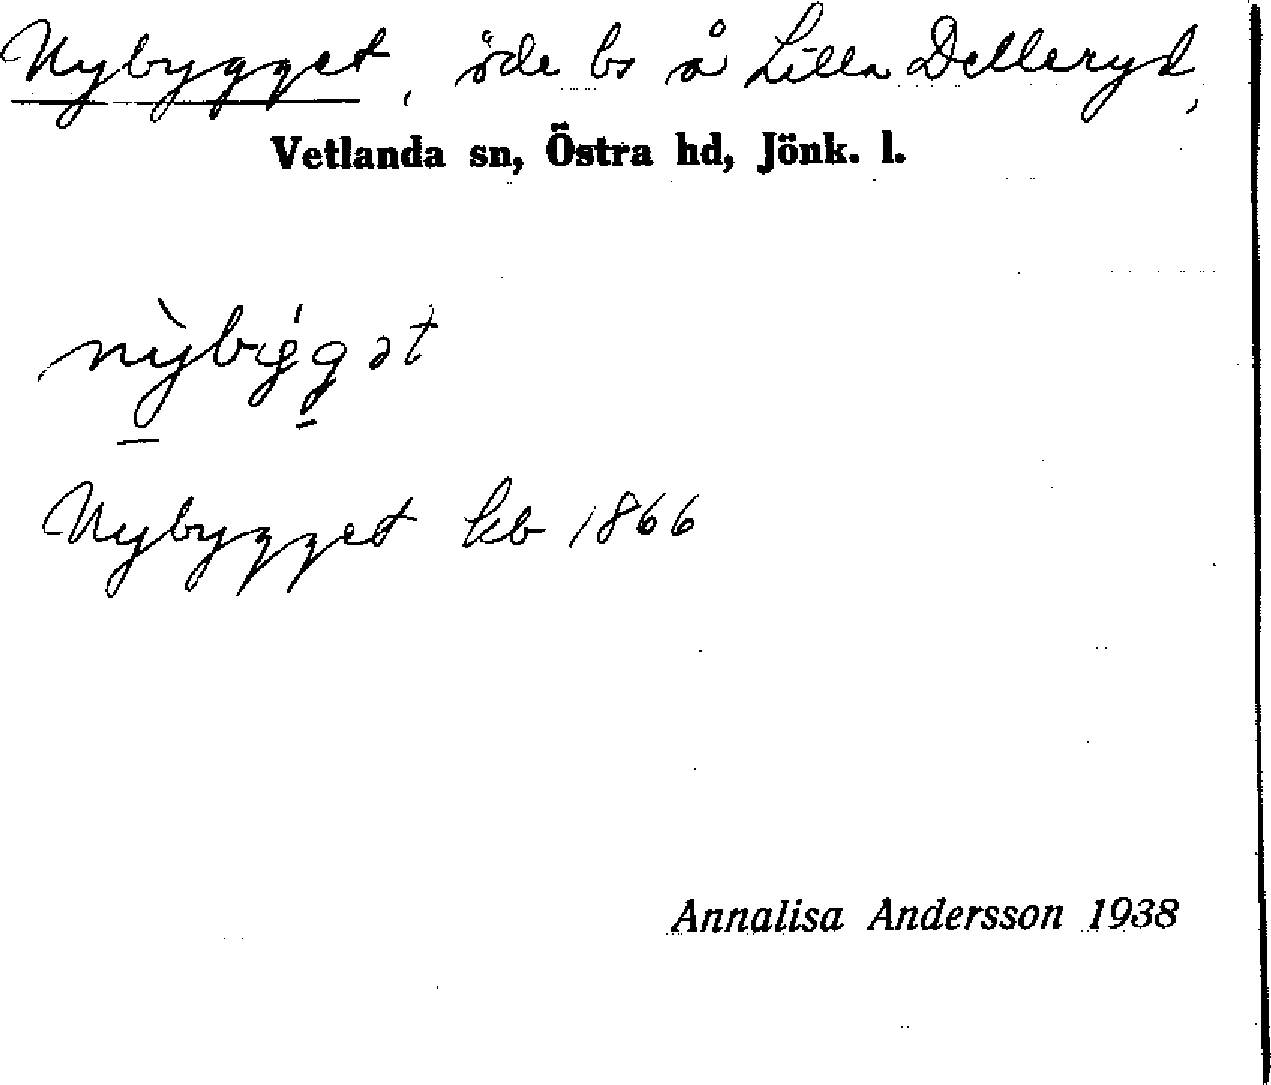 Nybygget, öde bs å Lilla Delleryd,
Vetlanda sn, Östra hd, Jönk. l.
nỳbýgət
Nybygget kb 1866
Annalisa Andersson 1938